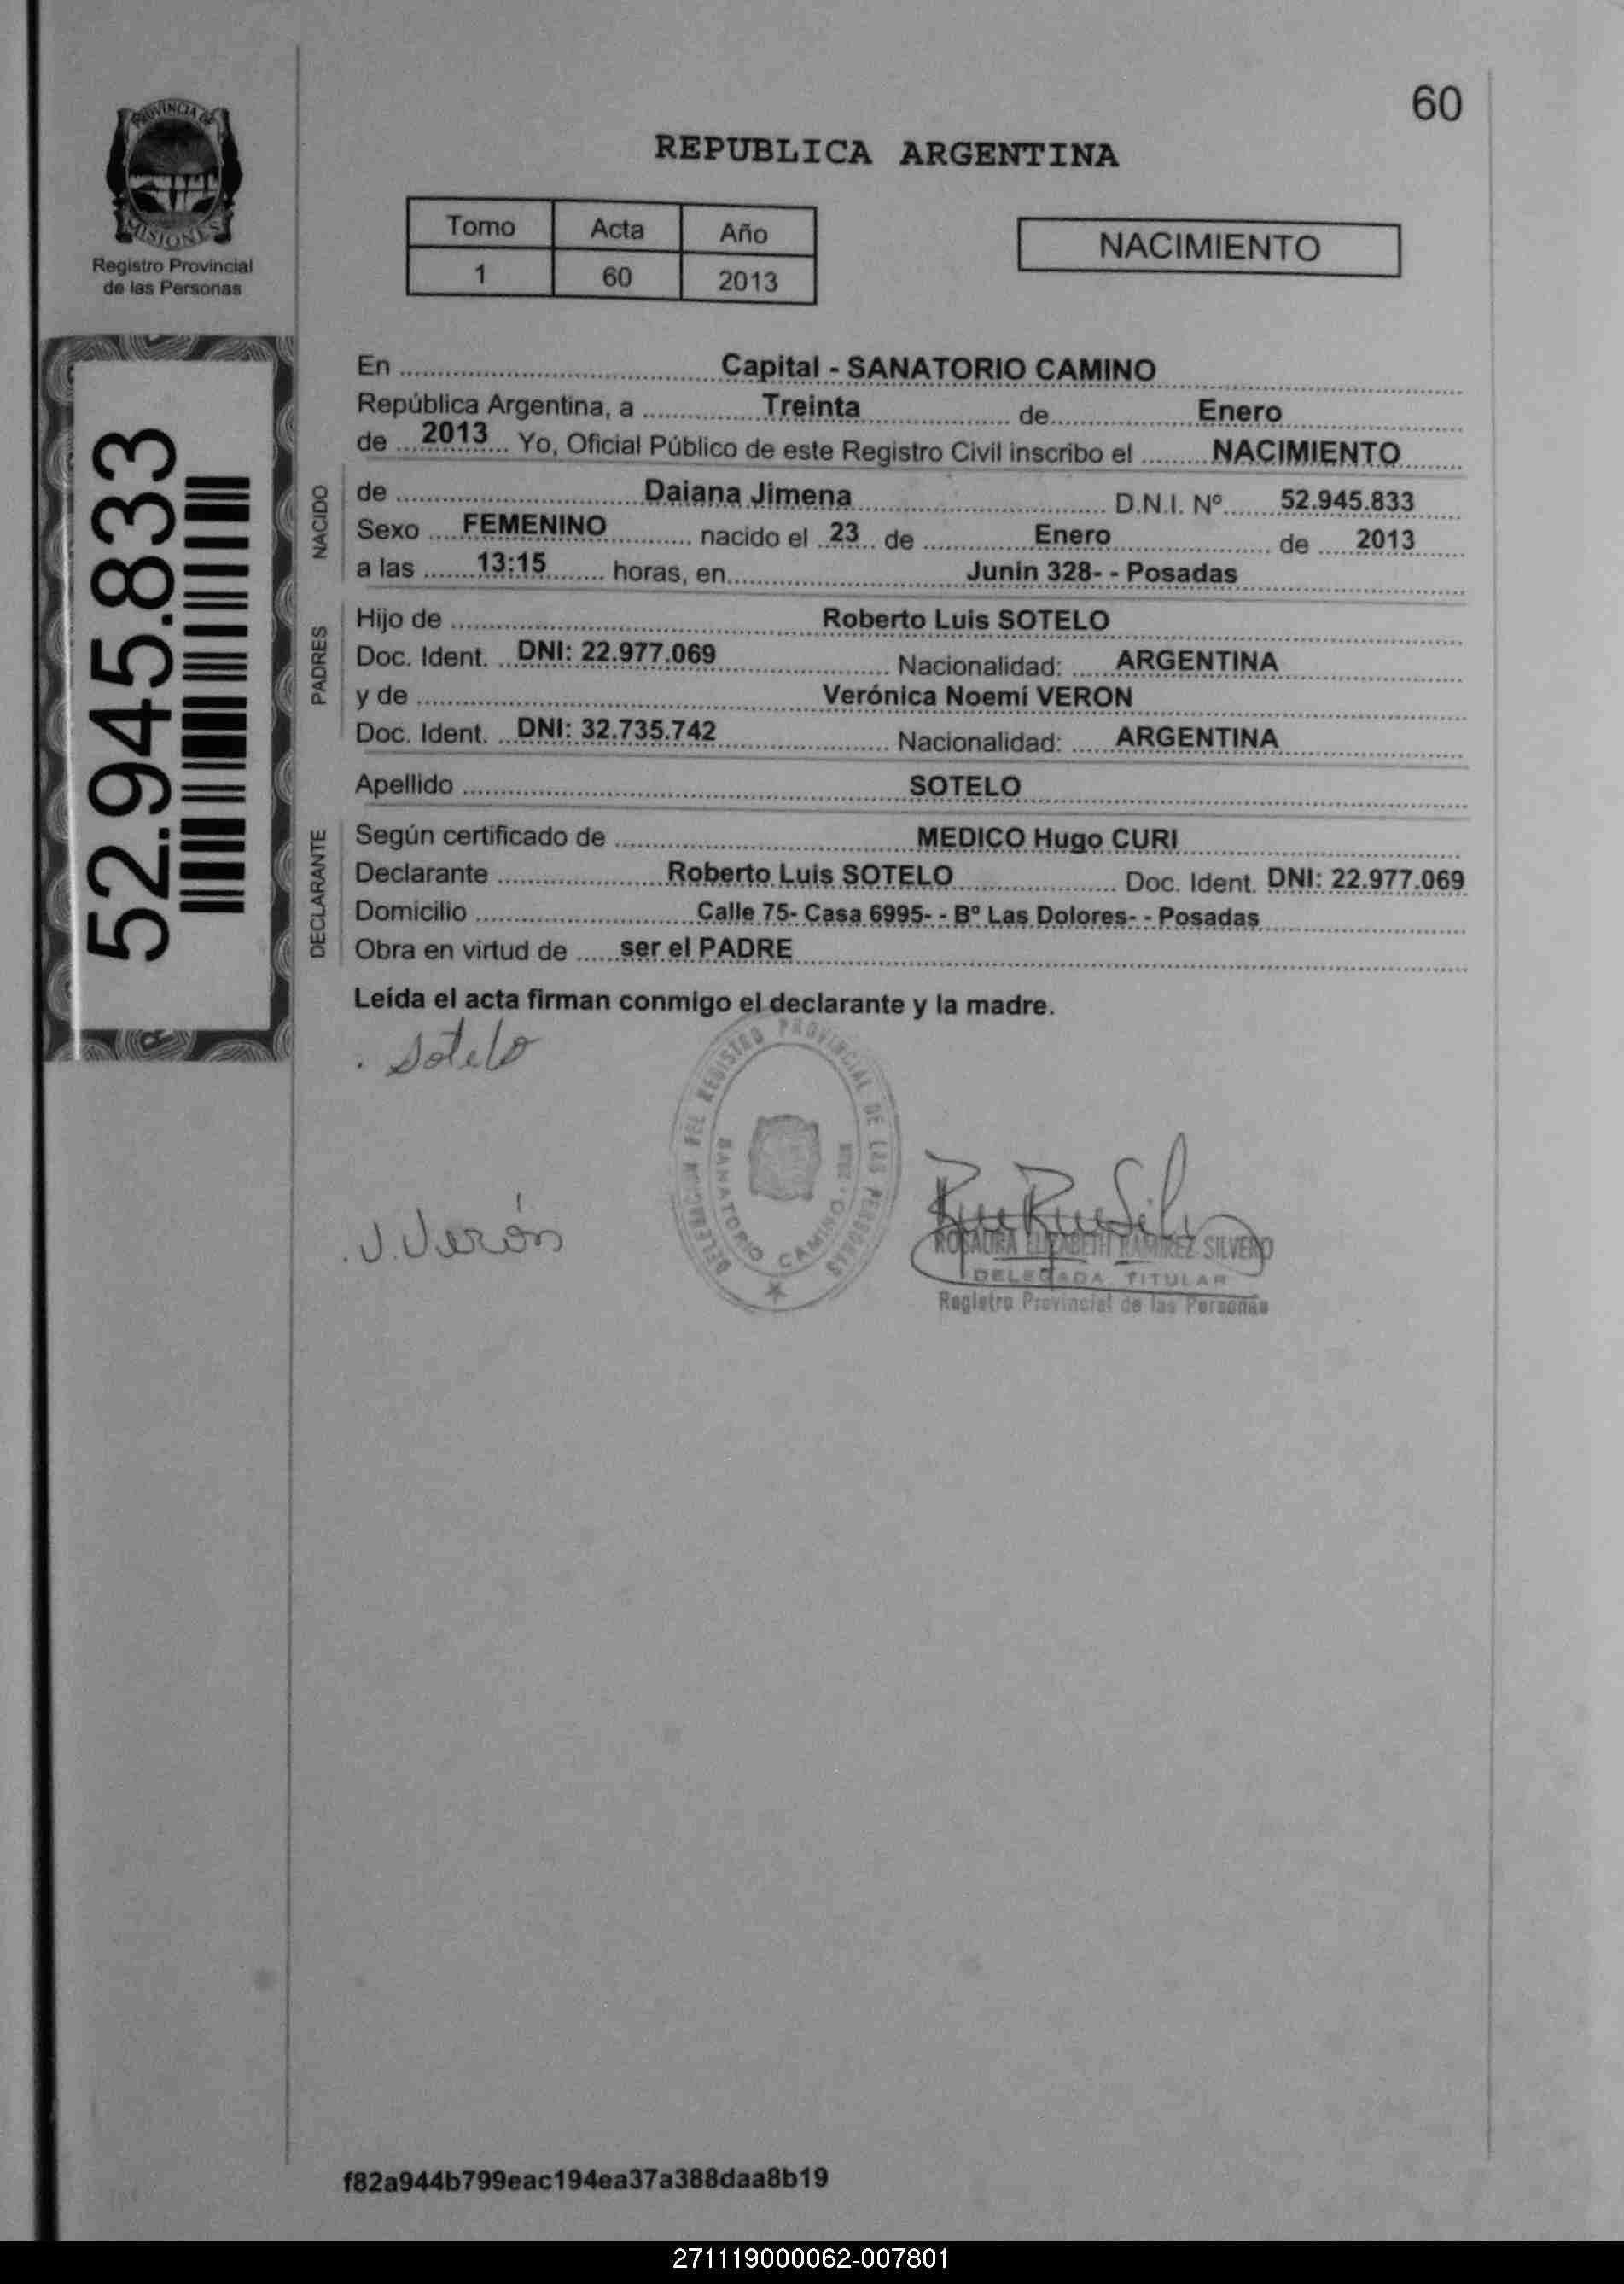 60
PROVINCIA DE
MISIONES
Registro Provincial
de las Personas
REPUBLICA ARGENTINA
Tomo Acta Año
1 60 2013
NACIMIENTO
52.945.833
En Capital - SANATORIO CAMINO
República Argentina, a Treinta de Enero
de 2013 Yo, Oficial Público de este Registro Civil inscribo el NACIMIENTO
NACIDO
de Daiana Jimena D.N.I. Nº 52.945.833
Sexo FEMENINO nacido el 23 de Enero de 2013
a las 13:15 horas, en Junín 328- - Posadas
PADRES
Hijo de Roberto Luis SOTELO
Doc. Ident. DNI: 22.977.069 Nacionalidad: ARGENTINA
y de Verónica Noemí VERON
Doc. Ident. DNI: 32.735.742 Nacionalidad: ARGENTINA
Apellido SOTELO
DECLARANTE
Según certificado de MEDICO Hugo CURI
Declarante Roberto Luis SOTELO Doc. Ident. DNI: 22.977.069
Domicilio Calle 75- Casa 6995- - Bº Las Dolores- - Posadas
Obra en virtud de ser el PADRE
Leída el acta firman conmigo el declarante y la madre.
Sotelo
DEL REGISTRO PROVINCIAL DE LAS PERSONAS
SANATORIO CAMINO
V. Verón
ROSAURA ELIZABETH RAMIREZ SILVERO
DELEGADA TITULAR
Registro Provincial de las Personas
f82a944b799eac194ea37a388daa8b19
271119000062-007801